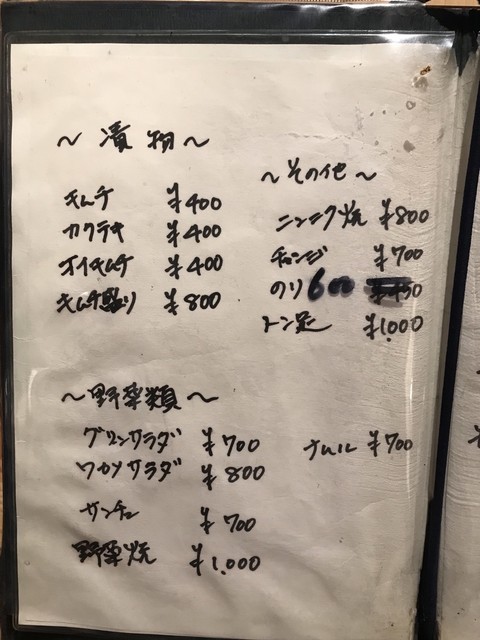 ～漬物～
キムチ ¥400
カクテキ ¥400
オイキムチ ¥400
キムチ盛り ¥800
～その他～
ニンニク焼 ¥800
チャンジ ¥700
のり 600 ¥450
トン足 ¥1,000
～野菜類～
グリンサラダ ¥700
ワカメサラダ ¥800
サンチュ ¥700
野菜焼 ¥1,000
ナムル ¥700